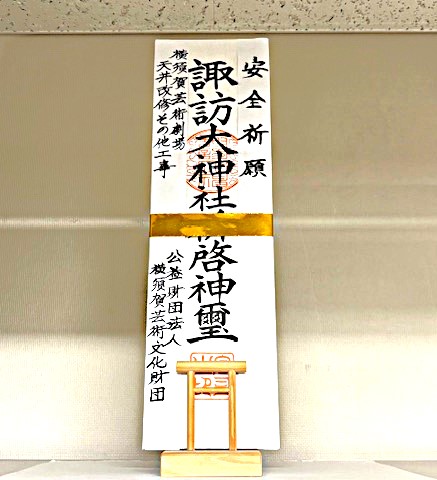 安全祈願
諏訪大神社
啓神璽
横須賀芸術劇場
天井改修その他工事
公益財団法人
横須賀芸術文化財団